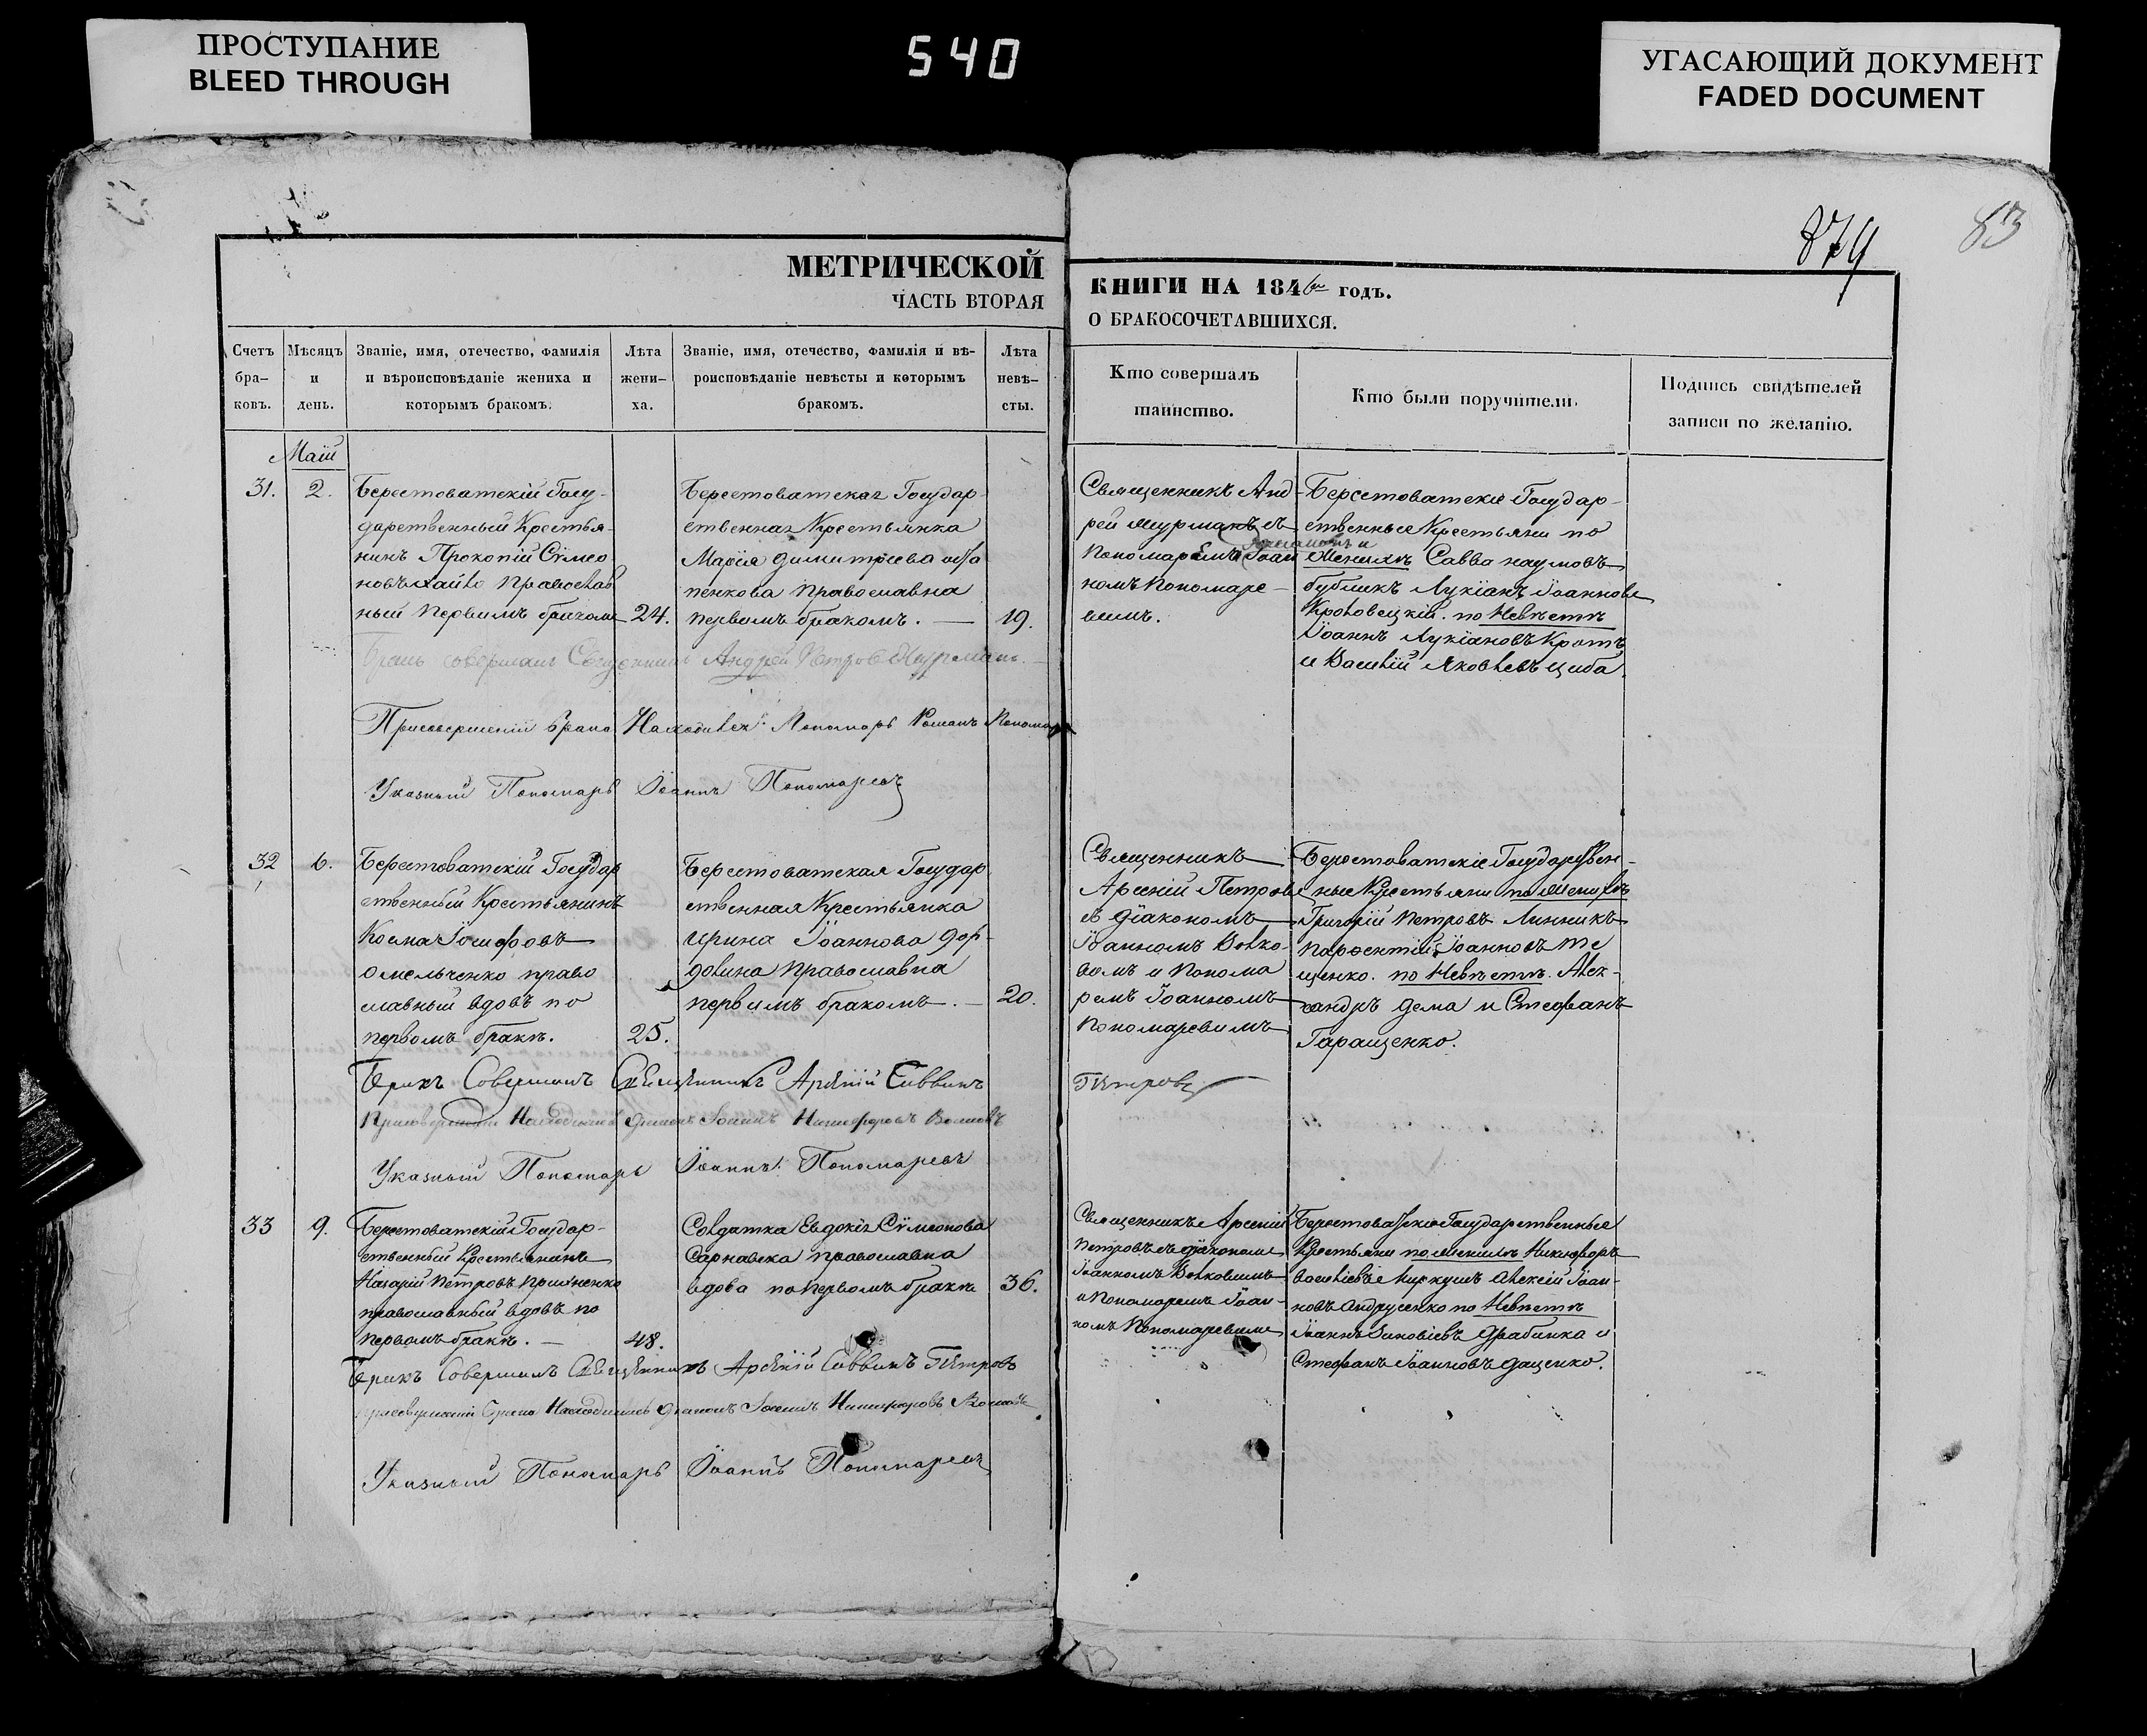 ПРОСТУПАНИЕ
BLEED THROUGH
540
УГАСАЮЩИЙ ДОКУМЕНТ
FADED DOCUMENT
874
83
МЕТРИЧЕСКОЙ
ЧАСТЬ ВТОРАЯ
Счетъ бра- ковъ.
Мѣсяцъ и день.
Званіе, имя, отечество, фамилія
и вѣроисповѣданіе жениха и
которымъ бракомъ.
Лѣта жени- ха.
Званіе, имя, отечество, фамилія и вѣ-
роисповѣданіе невѣсты и которымъ
бракомъ.
Лѣта невѣ- сты.
КНИГИ НА 1846 годъ.
О БРАКОСОЧЕТАВШИХСЯ.
Кто совершалъ
таинство.
Кто были поручители.
Подпись свидѣтелей
записи по желанію.
Маій
31.
2.
Берестоватскій Госу-
дарственный Крестья-
нинъ Прокопій Сѵмео
новъ православ
ный первымъ бракомъ
24.
Берестоватская Государ-
ственная Крестьянка
Марія Димитріева
пенкова православна
первымъ бракомъ. —
19.
Священникъ Анд-
рей Мурманъ съ
Пономаремъ Іоан
номъ Пономаре-
вимъ.
Берестоватскіе Государ-
ственные Крестьяни по
Женихѣ Савва Наумовъ
Бубликъ Лукіанъ Іоанновъ
Кроповецкій. по Невѣстѣ
Іоаннъ Лукіановъ Кротъ
и Василій Яковлевъ Циба.
Бракъ совершалъ Священникъ Андрей Петровъ Мурманъ.
При совершеніи брака Находился Пономарь Романъ
Указный Пономарь Іоаннъ Пономаревъ
32
6.
Берестоватскій Государ
ственный Крестьянинъ
Косма Іосифовъ
Омельченко право
славный вдовъ по
первомъ бракѣ.
25.
Берестоватская Государ
ственная Крестьянка
Ирина Іоаннова
православна
первимъ бракомъ. —
20.
Священникъ
Арсеній Петровъ
съ Діакономъ
Іоанномъ Волко-
вомъ и Понома
ремъ Іоанномъ
Пономаревимъ
Берестоватскіе Государствен-
ные Крестьяни по Женихѣ
Григорій Петровъ Линникъ
Парфентій Іоанновъ Те
щенко. по Невѣстѣ. Алек-
сандръ Дема и Стефанъ
Гаращенко.
Бракъ Совершилъ Священникъ Арсеній Саввинъ
Петровъ
Находился Діаконъ Іоаннъ Никифоровъ Волковъ
Указный Пономарь Іоаннъ Пономаревъ
33
9.
Берестоватскій Государ-
ственный Крестьянинъ
Назарій Петровъ
православный вдовъ по
первомъ бракѣ. —
48.
Солдатка Евдокія Сѵмеонова
Сарнавска православна
вдова по первомъ бракѣ
36.
Священникъ Арсеній
Петровъ съ Діакономъ
Іоанномъ Волковимъ
и Пономаремъ Іоан-
номъ Пономаревимъ
Берестоватскіе Государственные
Крестьяни по Женихѣ Никифоръ
Василіевъ Алексій Іоан-
новъ Андрусенко по Невѣстѣ
Іоаннъ Зиновіевъ Драбинка и
Стефанъ Іоанновъ Даценко.
Бракъ Совершилъ Священникъ Арсеній Саввинъ Петровъ
При совершеніи брака Находился Діаконъ Іоаннъ Никифоровъ Волковъ
Указный Пономарь Іоаннъ Пономаревъ